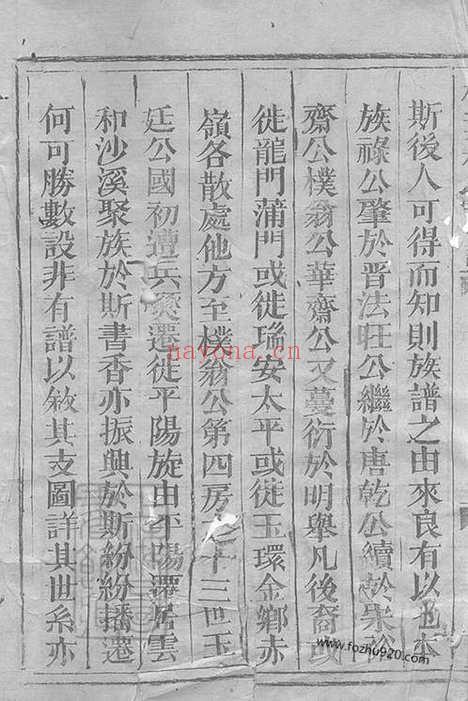 斯後人可得而知則族譜之由來良有以也本
族祿公肇於晋法旺公繼於唐乾公續於宋松
齋公樸翁公華齋公又蔓衍於明舉凡後裔或
徙龍門蒲門或徙瑞安太平或徙玉環金鄉赤
嶺各散處他方至樸翁公第四房之十三世玉
廷公國初遭兵燹遷徙平陽旋由平陽澤居雲
和沙溪聚族於斯書香亦振興於斯紛紛播遷
何可勝數設非有譜以敘其支圖詳其世系亦
nayona.cn
www.fozhu920.com